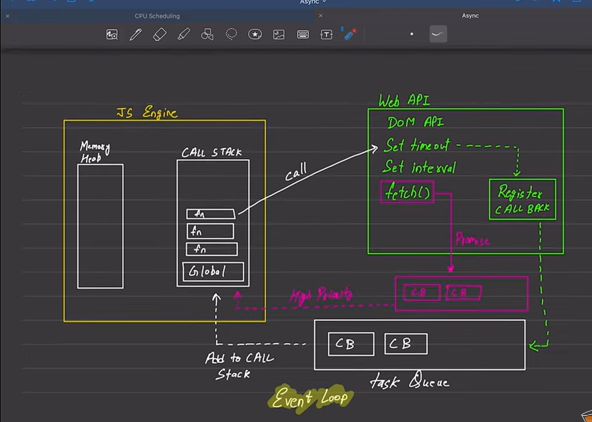 Async
CPU Scheduling
Async
JS Engine
Memory
Heap
CALL STACK
fn
fn
fn
Global
call
Web API
DOM API
Set timeout
Set interval
fetch()
Register
CALL BACK
Promise
High Priority
CB
CB
CB
CB
Add to CALL
Stack
task Queue
Event Loop